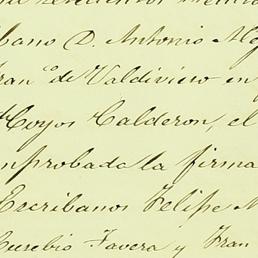 bano D. Antonio Al
Fran.co de Valdivieso en
Hoyos Calderon, el
mprobada la firma
Escribanos Felipe M
Eusebio Tavera y Fran